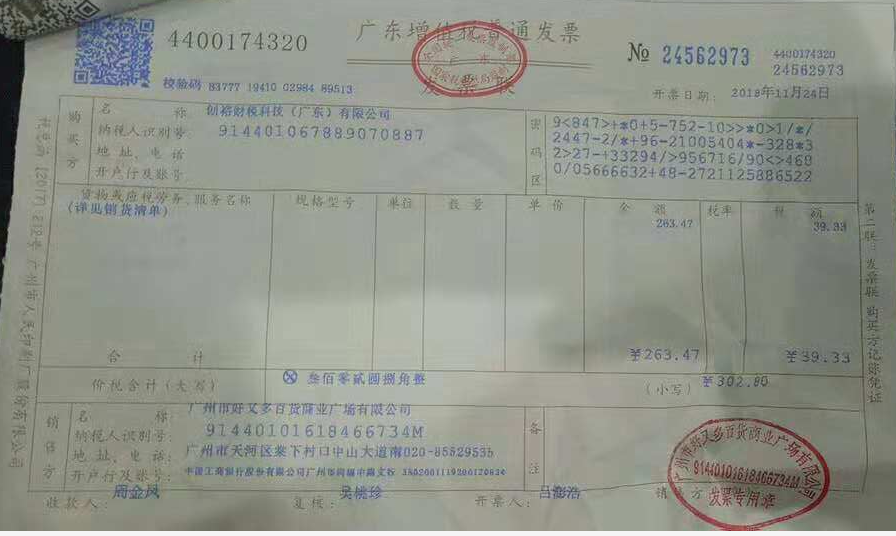 4400174320
广东增值税普通发票
发票联
№ 24562973
4400174320
24562973
校验码 83777 19410 02984 89513
开票日期: 2018年11月24日
购买方
名称 创裕财税科技（广东）有限公司
纳税人识别号: 914401067889070887
地址、电话
开户行及账号
密码区
9<847>+*0+5-752-10>>*0>1/*/
2447-2/*+96-21005404*-328*3
2>27-+33294/>956716/90<>468
0/05666632+48-2721125886522
货物或应税劳务、服务名称 规格型号 单位 数量 单价 金额 税率 税额
(详见销货清单) 263.47 39.33
合计 ¥263.47 ¥39.33
价税合计(大写) ⊗ 叁佰零贰圆捌角整 (小写) ¥302.80
销售方
名称: 广州市好又多百货商业广场有限公司
纳税人识别号: 91440101618466734M
地址、电话: 广州市天河区棠下村口中山大道南020-85529535
开户行及账号: 中国工商银行股份有限公司广州市
备注
收款人: 周金凤 复核: 吴桃珍 开票人: 吕澎浩 销售方
广州市好又多百货商业广场有限公司
91440101618466734M
发票专用章
第二联:发票联 购买方记账凭证
广州市人民印刷厂股份有限公司